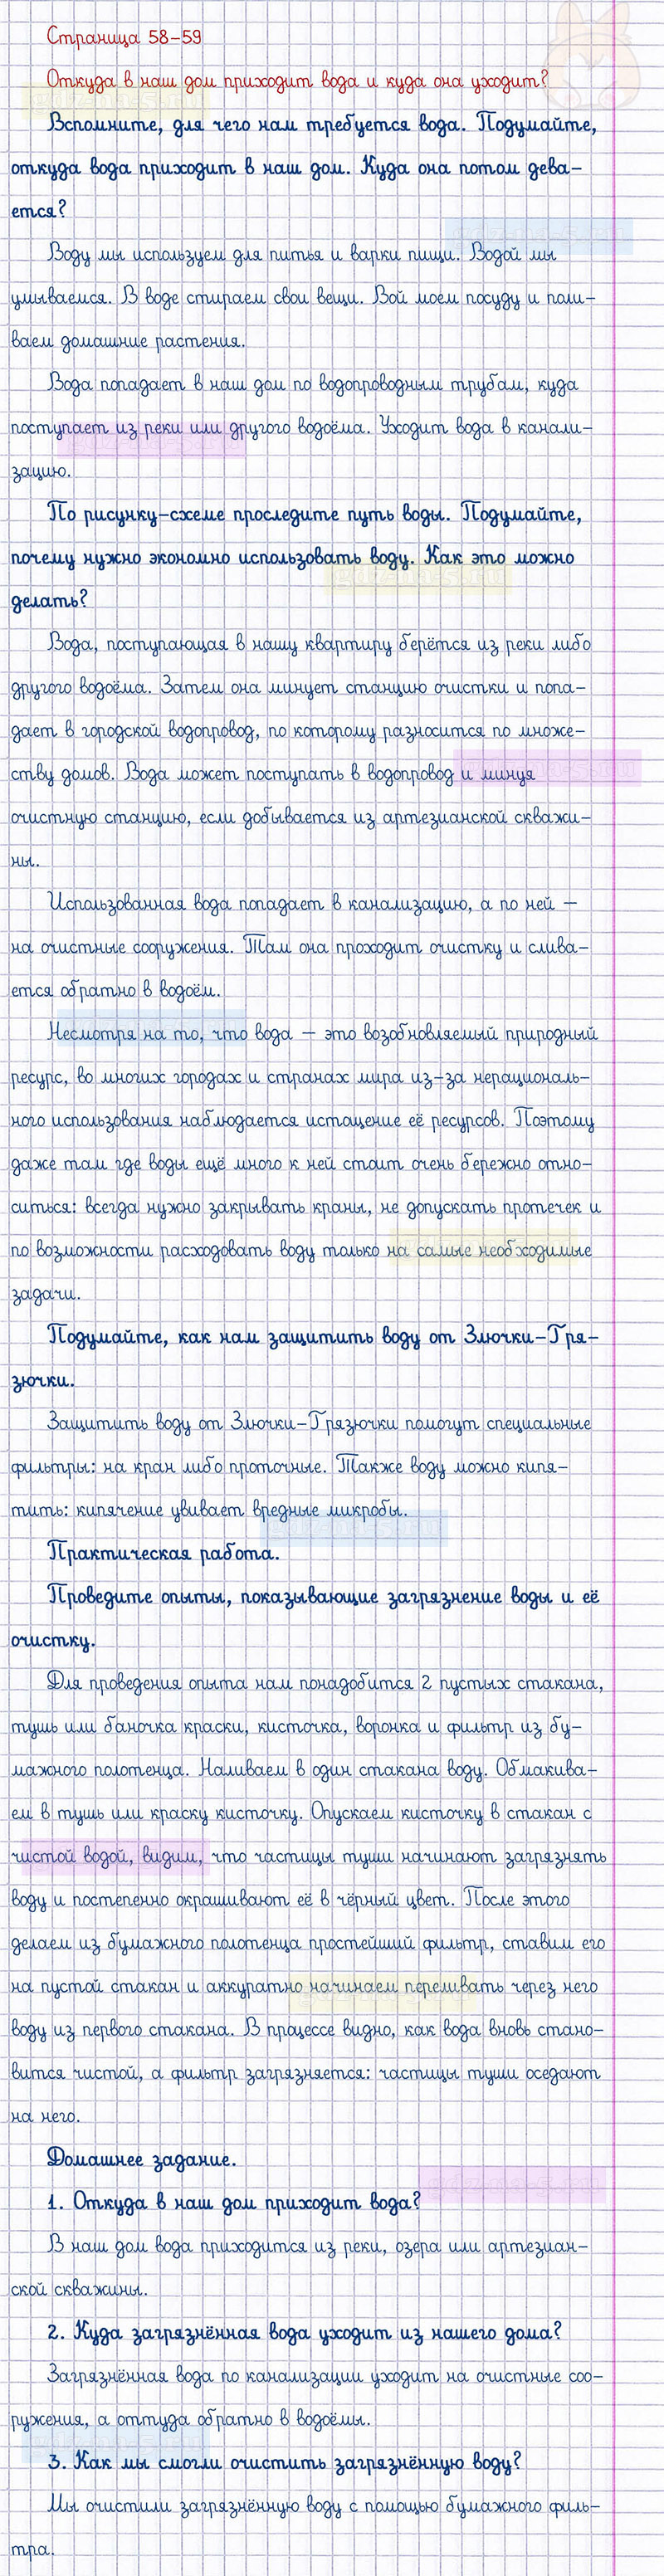 Страница 58-59
Откуда в наш дом приходит вода и куда она уходит?
Вспомните, для чего нам требуется вода. Подумайте,
откуда вода приходит в наш дом. Куда она потом дева-
ется?
Воду мы используем для питья и варки пищи. Водой мы
умываемся. В воде стираем свои вещи. Вой моем посуду и поли-
ваем домашние растения.
Вода попадает в наш дом по водопроводным трубам, куда
поступает из реки или другого водоёма. Уходит вода в канали-
зацию.
По рисунку-схеме проследите путь воды. Подумайте,
почему нужно экономно использовать воду. Как это можно
делать?
Вода, поступающая в нашу квартиру берётся из реки либо
другого водоёма. Затем она минует станцию очистки и попа-
дает в городской водопровод, по которому разносится по множе-
ству домов. Вода может поступать в водопровод и минуя
очистную станцию, если добывается из артезианской скважи-
ны.
Использованная вода попадает в канализацию, а по ней —
на очистные сооружения. Там она проходит очистку и слива-
ется обратно в водоём.
Несмотря на то, что вода — это возобновляемый природный
ресурс, во многих городах и странах мира из-за нерациональ-
ного использования наблюдается истощение её ресурсов. Поэтому
даже там где воды ещё много к ней стоит очень бережно отно-
ситься: всегда нужно закрывать краны, не допускать протечек и
по возможности расходовать воду только на самые необходимые
задачи.
Подумайте, как нам защитить воду от Злючки-Гря-
зючки.
Защитить воду от Злючки-Грязючки помогут специальные
фильтры: на кран либо проточные. Также воду можно кипя-
тить: кипячение увивает вредные микробы.
Практическая работа.
Проведите опыты, показывающие загрязнение воды и её
очистку.
Для проведения опыта нам понадобится 2 пустых стакана,
тушь или баночка краски, кисточка, воронка и фильтр из бу-
мажного полотенца. Наливаем в один стакана воду. Обмакива-
ем в тушь или краску кисточку. Опускаем кисточку в стакан с
чистой водой, видим, что частицы туши начинают загрязнять
воду и постепенно окрашивают её в чёрный цвет. После этого
делаем из бумажного полотенца простейший фильтр, ставим его
на пустой стакан и аккуратно начинаем переливать через него
воду из первого стакана. В процессе видно, как вода вновь стано-
вится чистой, а фильтр загрязняется: частицы туши оседают
на него.
Домашнее задание.
1. Откуда в наш дом приходит вода?
В наш дом вода приходится из реки, озера или артезиан-
ской скважины.
2. Куда загрязнённая вода уходит из нашего дома?
Загрязнённая вода по канализации уходит на очистные соо-
ружения, а оттуда обратно в водоёмы.
3. Как мы смогли очистить загрязнённую воду?
Мы очистили загрязнённую воду с помощью бумажного филь-
тра.